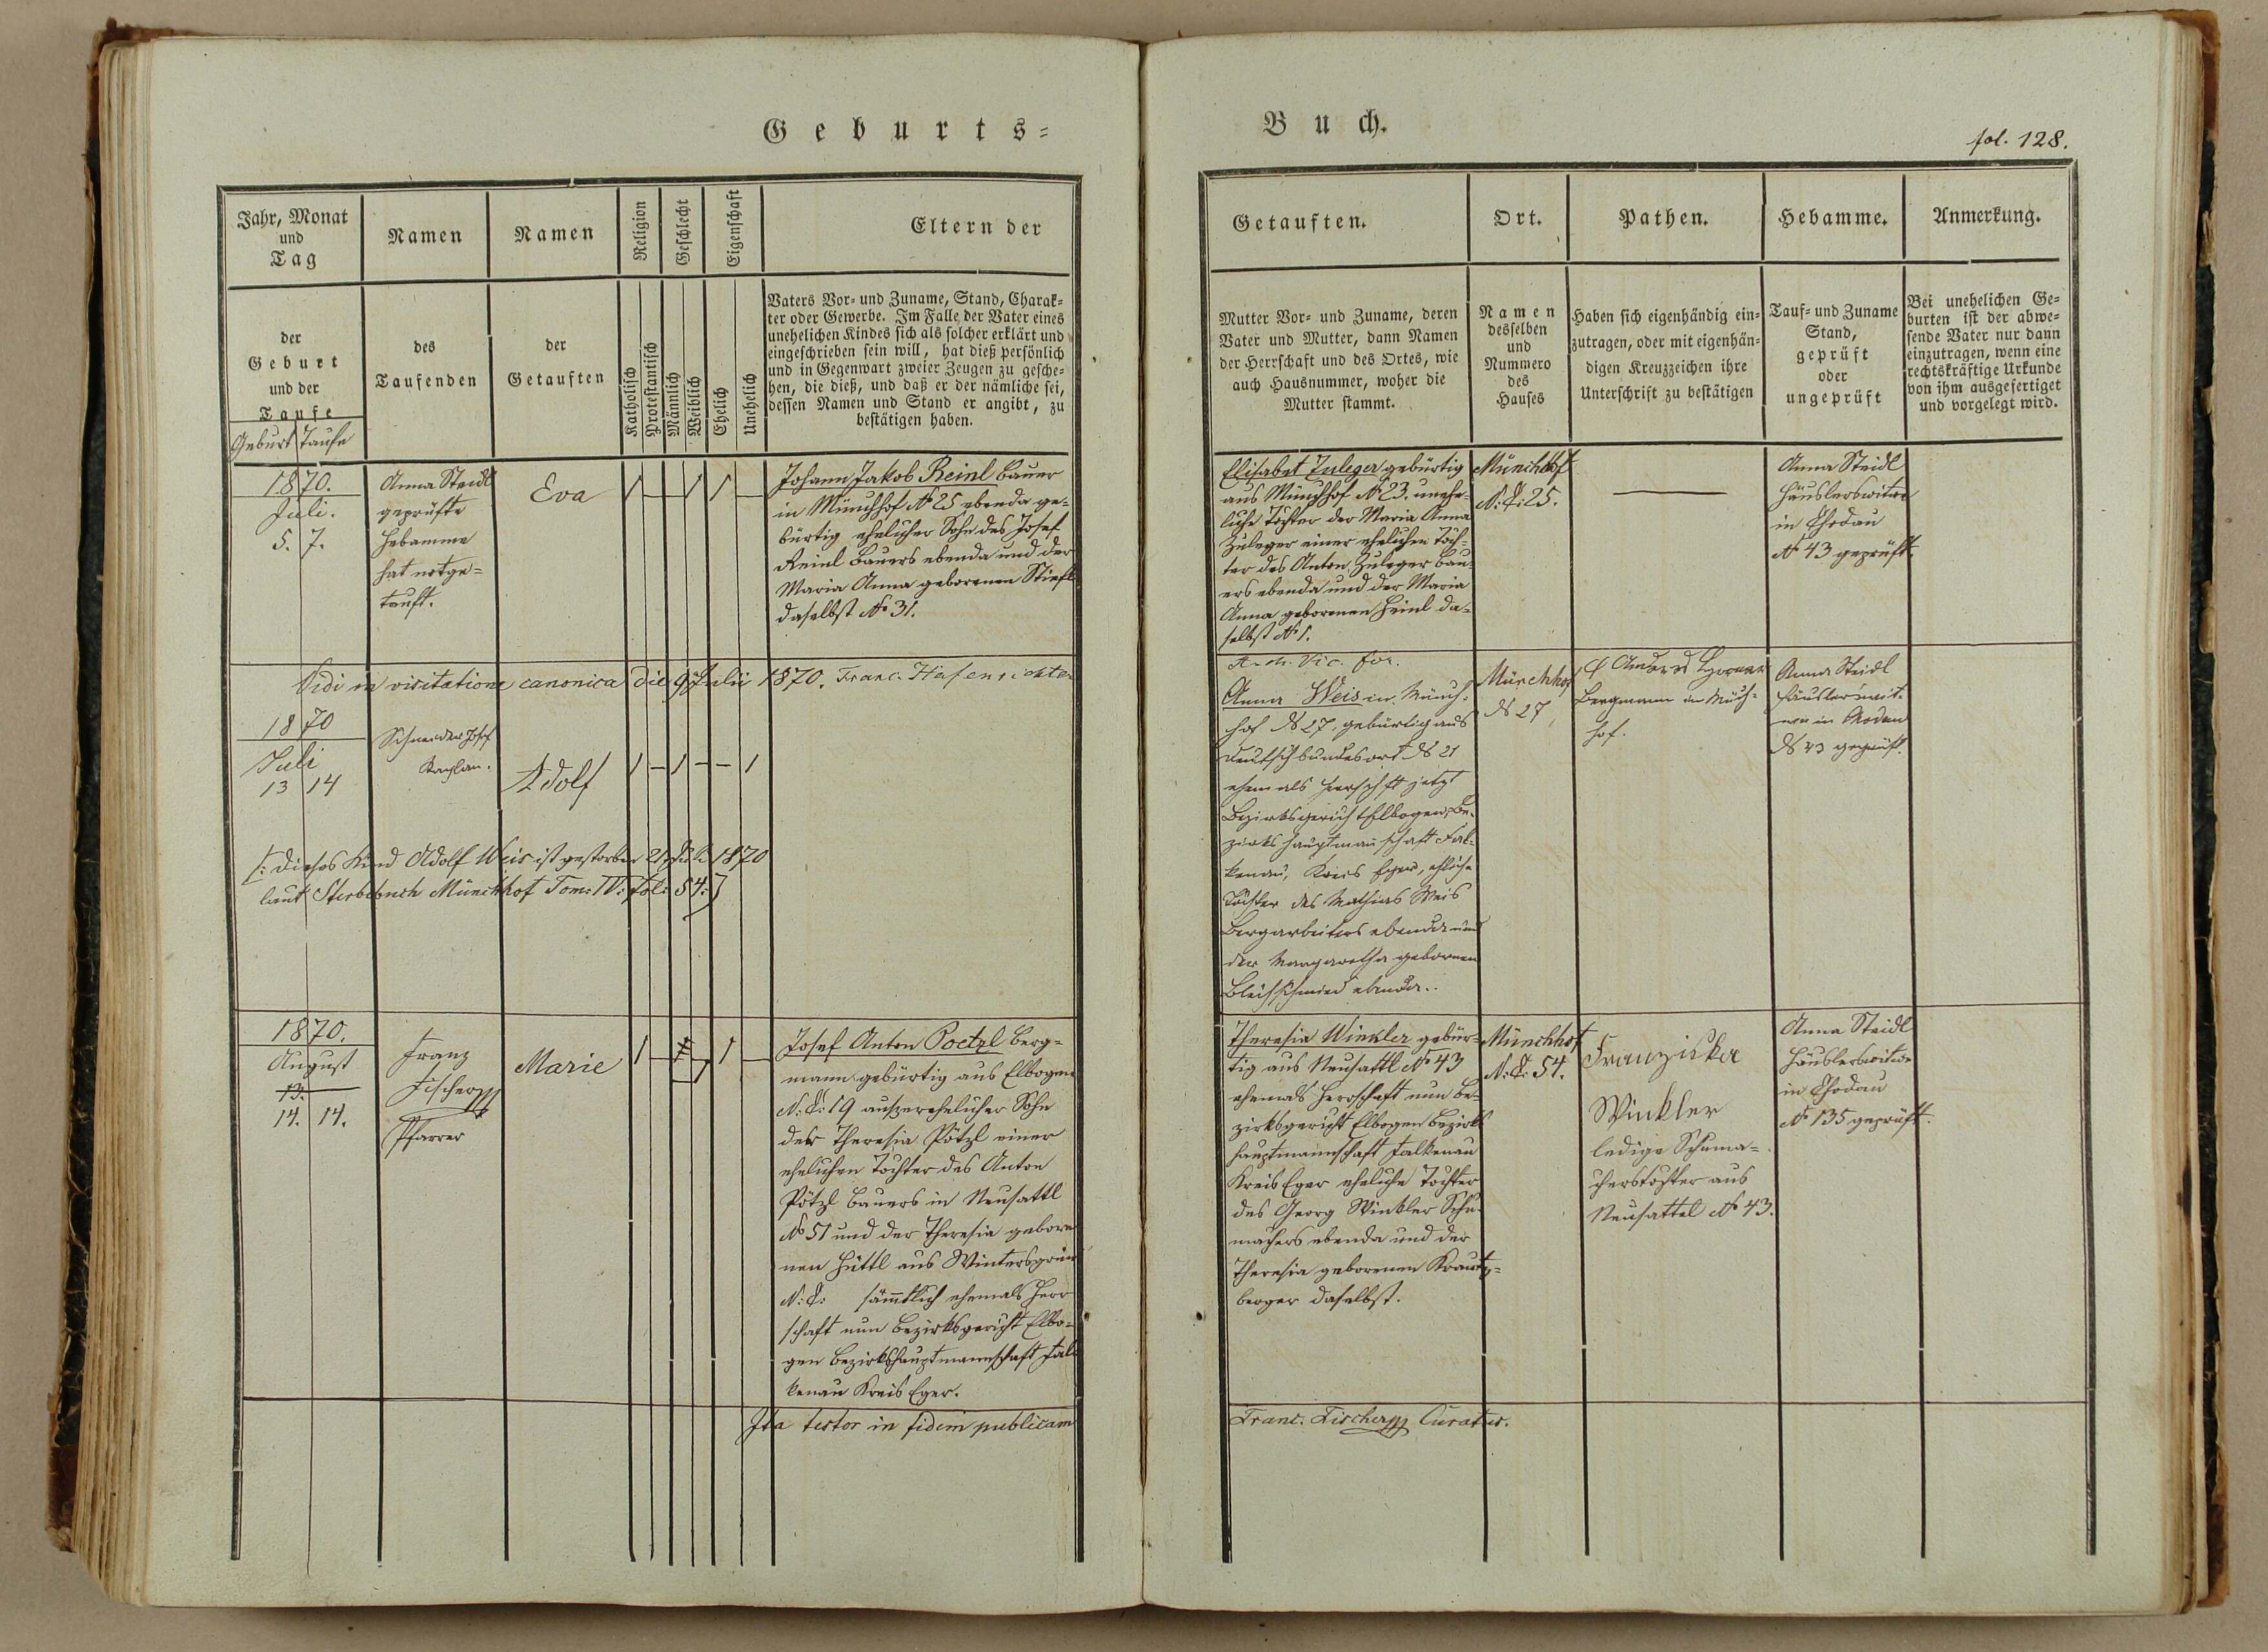 Geburts=
Buch.
fol. 128.
Jahr, Monat
und
Tag
Namen
Namen
Religion
Geschlecht
Eigenschaft
Eltern der
der
Geburt
und der
Taufe
Geburt Taufe
des
Taufenden
der
Getauften
Katholisch
Protestantisch
Männlich
Weiblich
Ehelich
Unehelich
Vaters Vor= und Zuname, Stand, Charak=
ter oder Gewerbe. Im Falle der Vater eines
unehelichen Kindes sich als solcher erklärt und
eingeschrieben sein will, hat dieß persönlich
und in Gegenwart zweier Zeugen zu gesche=
hen, die dieß, und daß er der nämliche sei,
dessen Namen und Stand er angibt, zu
bestätigen haben.
Getauften.
Ort.
Pathen.
Hebamme.
Anmerkung.
Mutter Vor= und Zuname, deren
Vater und Mutter, dann Namen
der Herrschaft und des Ortes, wie
auch Hausnummer, woher die
Mutter stammt.
Namen
desselben
und
Nummero
des
Hauses
Haben sich eigenhändig ein=
zutragen, oder mit eigenhän=
digen Kreuzzeichen ihre
Unterschrift zu bestätigen
Tauf= und Zuname
Stand,
geprüft
oder
ungeprüft
Bei unehelichen Ge=
burten ist der abwe=
sende Vater nur dann
einzutragen, wenn eine
rechtskräftige Urkunde
von ihm ausgefertiget
und vorgelegt wird.
1870.
Juli.
5. 7.
Anna Steidl
geprüfte
Hebamme
hat notge=
tauft.
Eva
1 — 1 1 —
Johann Jakob Reinl Bauer
in Münchhof No 25 ebenda ge=
bürtig ehelicher Sohn des Josef
Reinl Bauers ebenda und der
Maria Anna geborenen Stiefl
daselbst No 31.
Elisabet Zuleger gebürtig
aus Münchhof No 23. unehe=
liche Tochter der Maria Anna
Zuleger einer ehelichen Toch=
ter des Anton Zuleger Bau=
ers ebenda und der Maria
Anna geborenen Heinl da=
selbst No 1.
Münchhof
N: C: 25.
Anna Steidl
Häuslerswitwe
in Chodau
No 43 geprüft.
Vidi in visitatione canonica die 9 Julii 1870. Franc. Hafenrichter
Arch. Vic. for.
1870
Juli
13 14
Schneider Josef
Kaplan.
Adolf
1 – 1 – – 1
Anna Weis in Münch=
hof No 27, gebürtig aus
No 21
ehemals Herrschft jetzt
Bezirksgericht Elbogen, Be=
zirkshauptmanschaft Fal=
kenau, Kreis Eger, ehliche
Tochter des Mathias Weis
Bergarbeiters ebenda und
der Margaretha gebornen
Bleischmied ebenda..
Münchhof
No 27
Bergmann in Münch=
hof.
Anna Steidl
Häuslerswit=
we in Chodau
No 43 geprüft.
[: Dieses Kind Adolf Weis ist gestorben 21 Juli 1870
laut Sterbebuch Münchhof Tom: IV: fol: 54:]
1870.
August
13.
14. 14.
Franz
Fischer
Pfarrer
Marie
1 — 1 1 —
Josef Anton Poetzl Berg=
mann gebürtig aus Elbogen
N: C: 19 auszerehelicher Sohn
der Theresia Pötzl einer
ehelichen Tochter des Anton
Pötzl Bauers in Neusattl
No 51 und der Theresia gebore=
nen Hüttl aus Wintersgrün
N: C: sämtlich ehemals Herr
schaft nun Bezirksgericht Elbo=
gen Bezirkshauptmannschaft Fal
kenau Kreis Eger.
Theresia Winkler gebür=
tig aus Neusattl No 43
ehemals Herrschaft nun Be=
zirksgericht Elbogen Bezirks
hauptmannschaft Falkenau
Kreis Eger eheliche Tochter
des Georg Winkler Schu=
machers ebenda und der
Theresia geborenen Krautz=
berger daselbst.
Münchhof
N: C: 54.
Franziska
Winkler
ledige Schuma=
cherstochter aus
Neusattel No 43.
Anna Steidl
Häuslerswitwe
in Chodau
No 135 geprüft.
Ita testor in fidem publicam
Franc. Fischer Curatus.